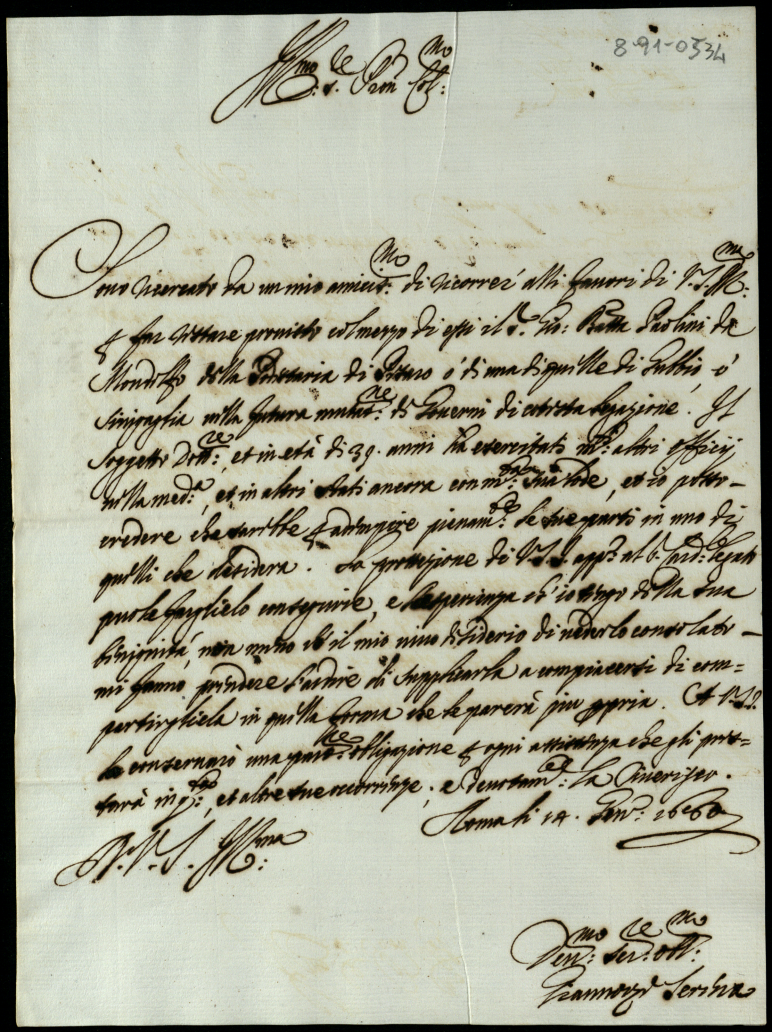 8-91-0534
Ill.mo S.re Pron Col.mo
Sono ricercato da un mio amiciss.mo di ricorrer' alli favori di V.S. Ill.ma
p far restare provisto col mezzo di essi il S.r Gio: Batta Paolini da
Mondolfo della Podstaria di Pesaro o' di una di quelle di Gubbio, o'
Sinigaglia nella futura mutat.ne di Governi di cotesta legazione. Il
soggetto è Dott.re, et in età di 39. anni ha exercitati m.ti altri officij
nella med.a, et in altri stati ancora con m.ta sua lode, et io posso
credere che sarebbe p adimpire pienam.te le sue parti in uno di
quelli che desidera. La protezione di V.S. Ill. app.o al S. Card. Legato
puole farglielo conseguire, e l'esperienza ch'io tengo della sua
benignità, non meno ch'il mio vivo desiderio di vederlo consolato
mi fanno prendere l'ardire di supplicarla a compiacersi di com=
partirgliela in quella forma che le parerà più propria. A V.S. Ill.
le conservarò una part.re obligazione p ogni assistenza che gli pres=
tarà in q.sto, et altre sue occorrenze, e devotam.te la riverisco.
Roma li 14. Gen.o 1660
D. V. S. Ill.ma
Dev.mo Ser.re Obl.mo
Giannozzo